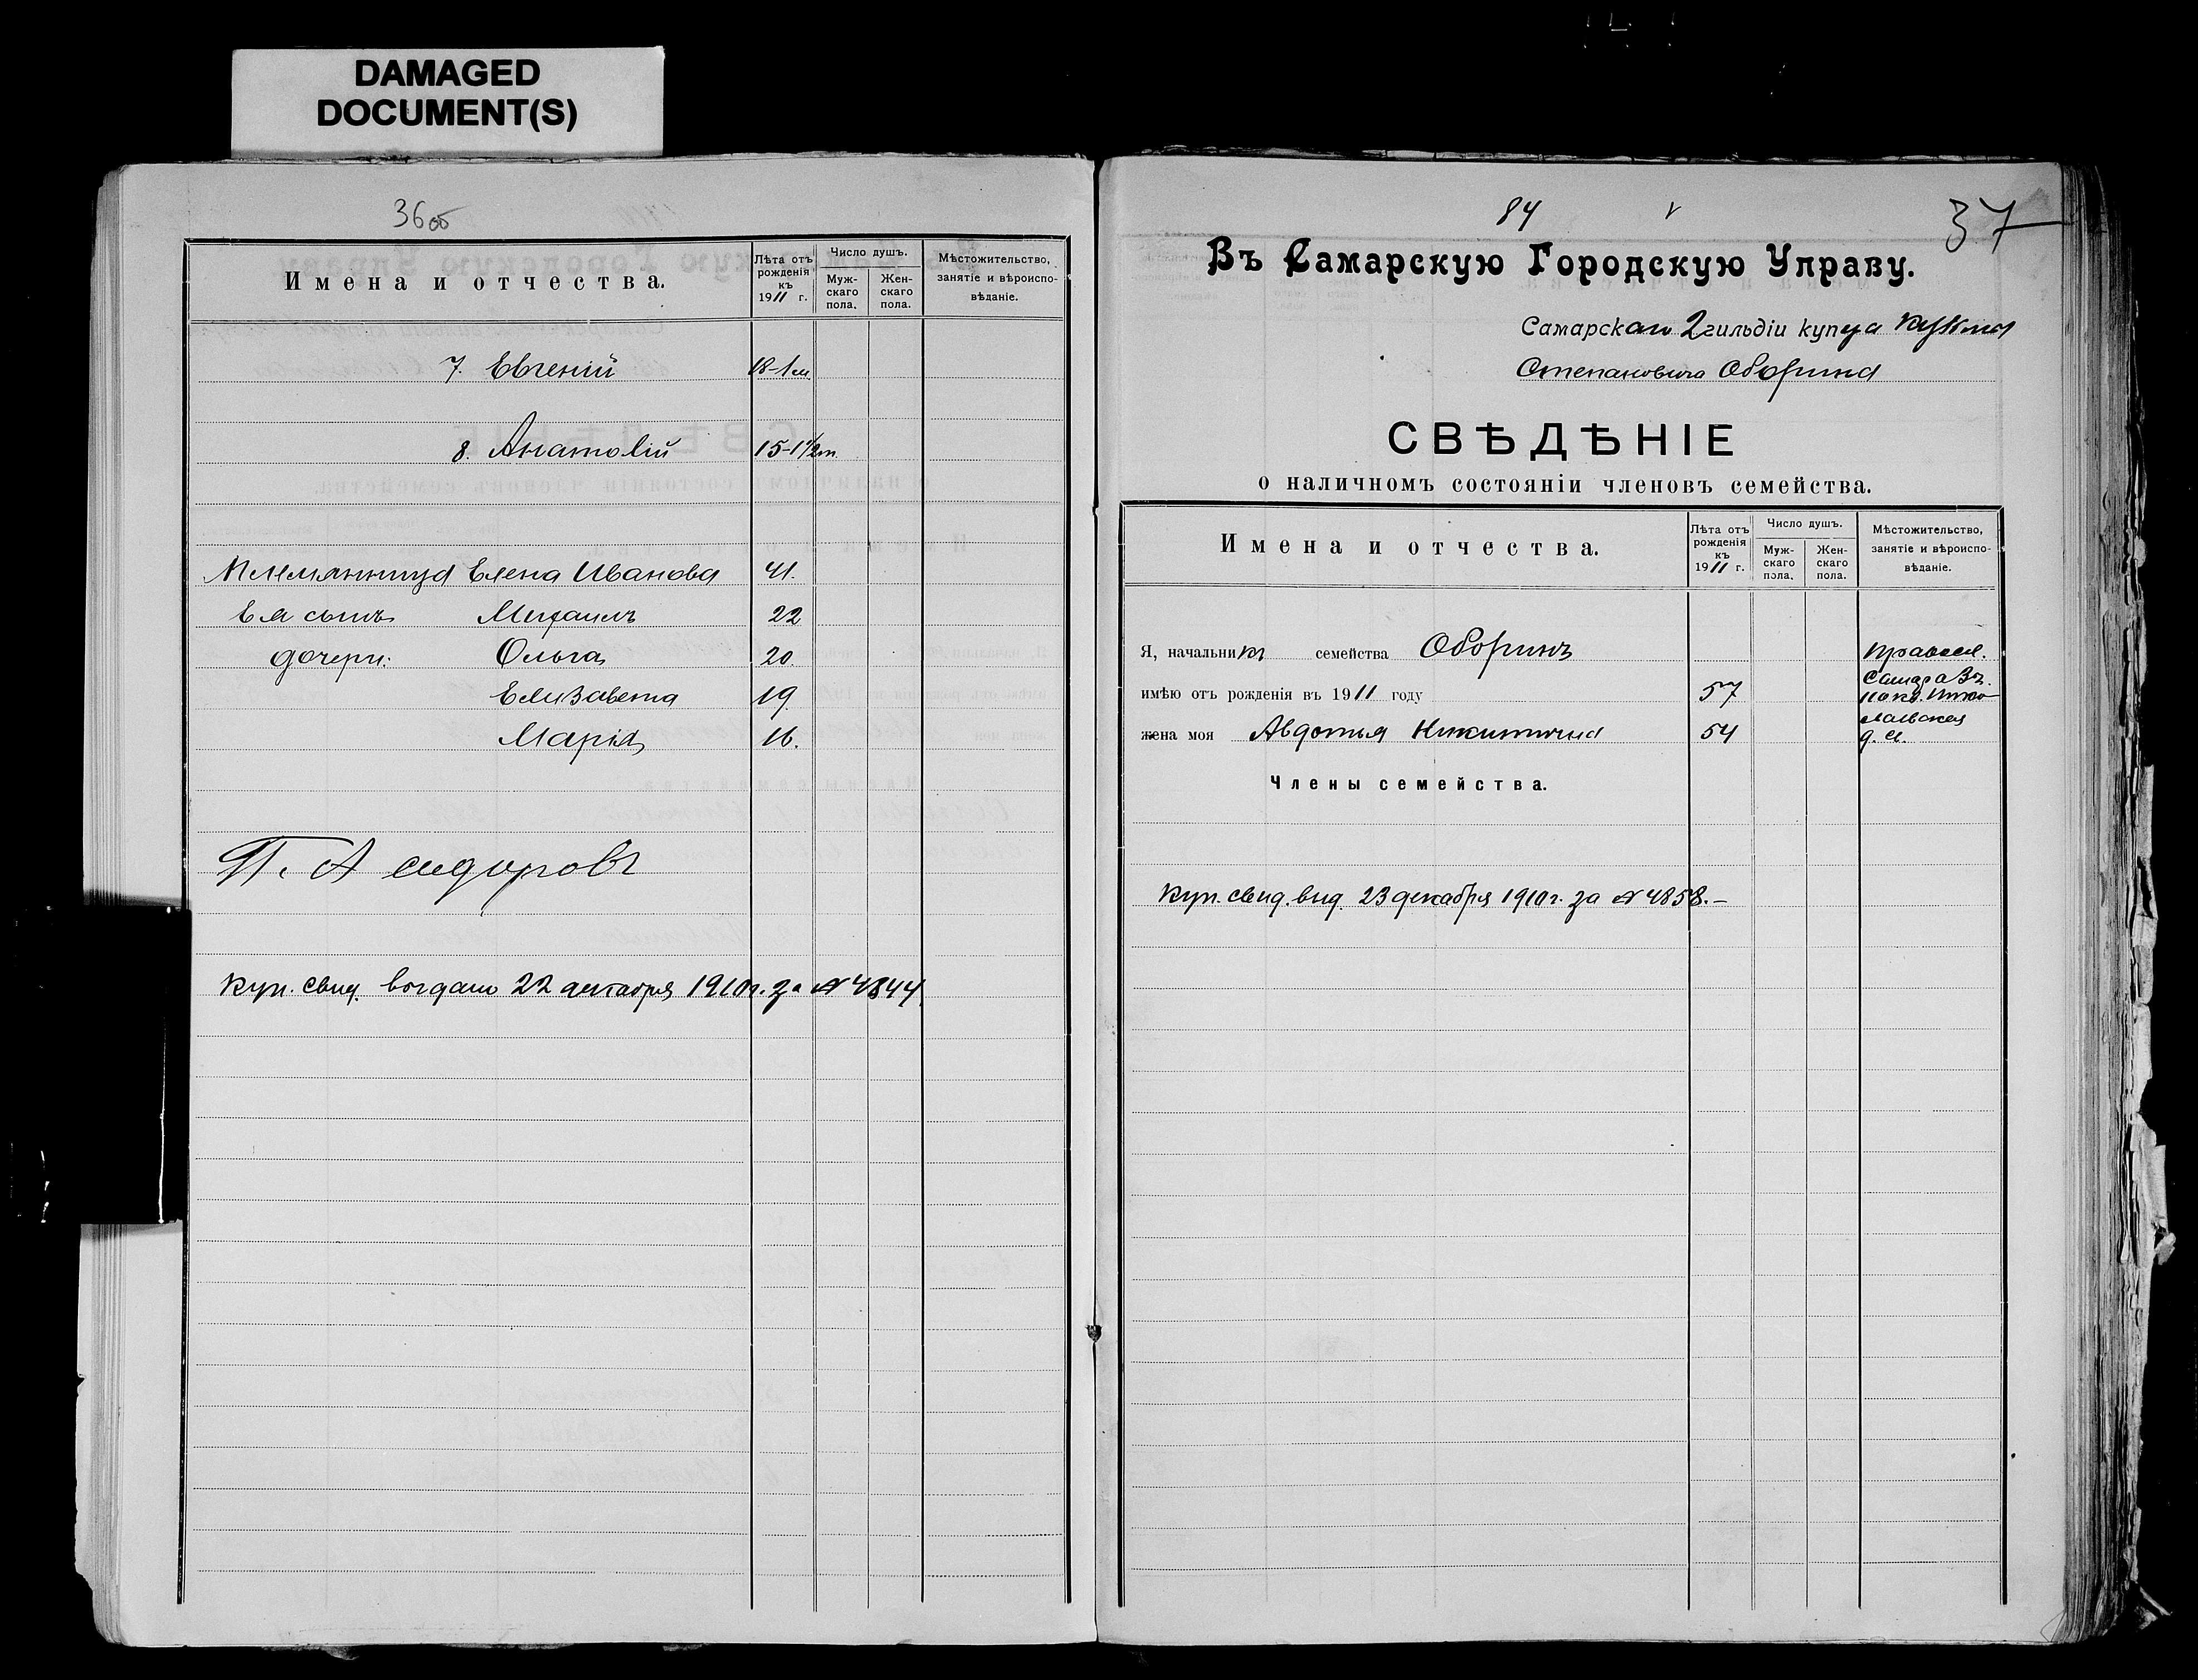 DAMAGED
DOCUMENT(S)
36об
Имена и отчества.
Лѣта отъ рожденія къ 1911 г.
Число душъ.
Мужскаго пола.
Женскаго пола.
Мѣстожительство, занятіе и вѣроисповѣданіе.
7. Евгеній 18-1м
8. Анатолій 15-1½м
Племянница Елена Иванова 41.
Ея сынъ Михаилъ 22
дочери: Ольга 20
Елизавета 19
Марія 16.
П. А Сидоровъ
Куп. свид. выдано 22 декабря 1910г. за № 4844
84
37
Въ Самарскую Городскую Управу.
Самарскаго 2 гильдіи купца Кузьма
Степановича Оборина
СВѢДѢНІЕ
о наличномъ состояніи членовъ семейства.
Имена и отчества.
Лѣта отъ рожденія къ 1911 г.
Число душъ.
Мужскаго пола.
Женскаго пола.
Мѣстожительство, занятіе и вѣроисповѣданіе.
Я, начальникъ семейства Оборинъ
Правосл.
имѣю отъ рожденія въ 1911 году 57
Самара
жена моя Авдотья Никитична 54
Члены семейства.
Куп. свид. выд. 23 декабря 1910г. за № 4858.-